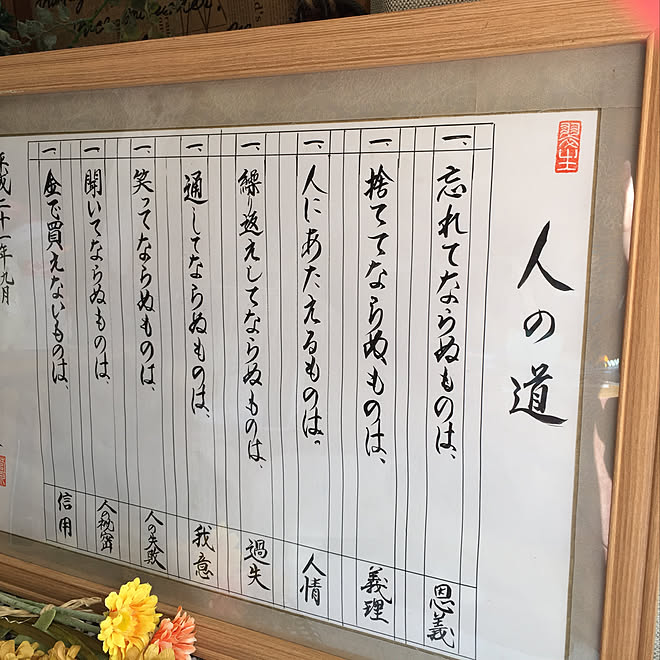 人の道
一、忘れてならぬものは、恩義
一、捨ててならぬものは、義理
一、人にあたえるものは。人情
一、繰り返えしてならぬものは、過失
一、通してならぬものは、我意
一、笑ってならぬものは、人の失敗
一、聞いてならぬものは、人の秘密
一、金で買えないものは、信用
平成二十一年九月